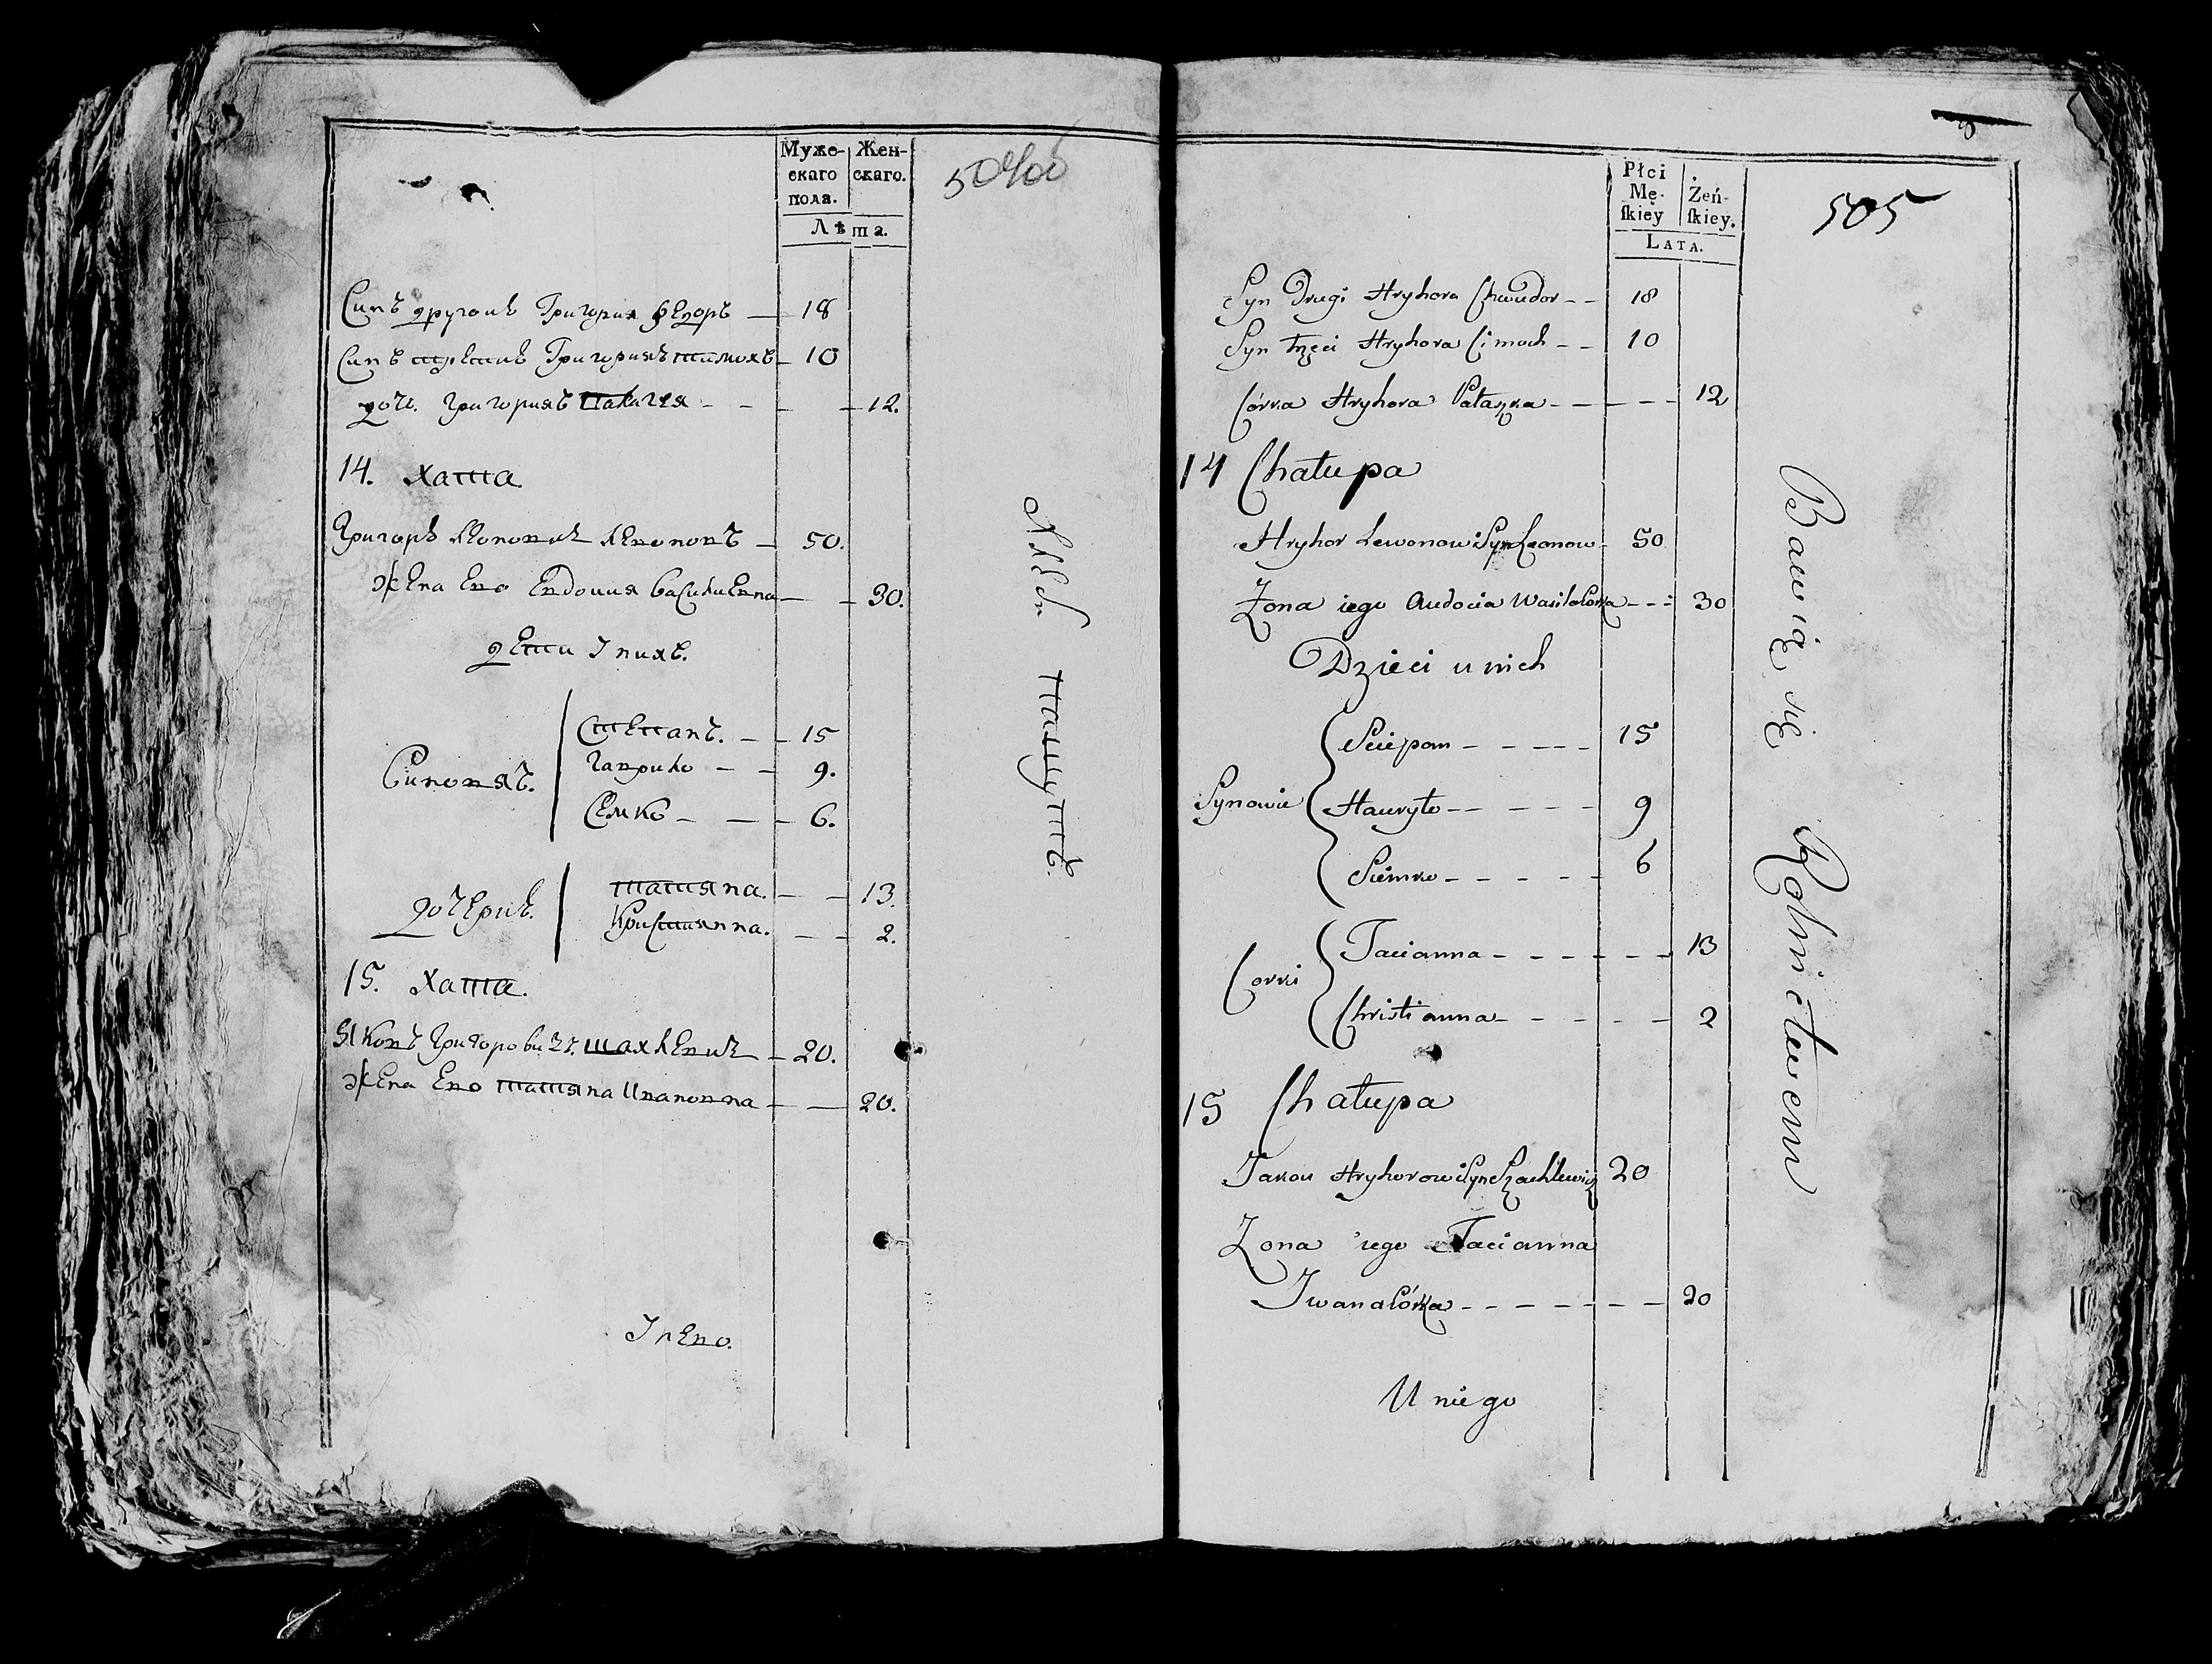 Муже-
скаго
пола.
Жен-
скаго.
Лѣта.
Синъ другой Григория Федоръ — 18
Синъ третий Григориявъ тимохъ — 10
дочь Григориявъ Палагея — — — 12.
14. хата
Григоръ Левоновъ — 50.
жена Ево Евдокия Василевна — — 30.
дети у нихъ.
Синовя.
Степанъ. — — 15
Гаврило — — 9.
Семко — — — 6.
дочери.
татяна. — — 13.
Християнна. — — 2.
15. хата.
Яковъ Григоровичъ шахлевичъ — 20.
жена Ево татяна Ивановна — — 20.
У нево.
Хлебо пашутъ.
Płci
Mę-
ſkiey
Żeń-
ſkiey.
LATA.
505
Syn Drugi Hryhora Chwiedor — — 18
Syn trzeci Hryhora Cimoch — — 10
Córka Hryhora Pałaszka — — — — — 12
14 Chałupa
Hryhor Lewonow Syn Leonow 50
Żona iego Audocia Wasila Córka — — — 30
Dzieci u nich
Synowie
Sciepan — — — — — 15
Hauryło — — — — — 9
Siemko — — — — — 6
Corki
Tacianna — — — — — — — 13
Christianna — — — — — — 2
15 Chałupa
Jakow Hryhorow Syn Szachlewicz 20
Zona iego Tacianna
Iwana Córka — — — — — — — — 20
U niego
Bawią się Rolnictwem